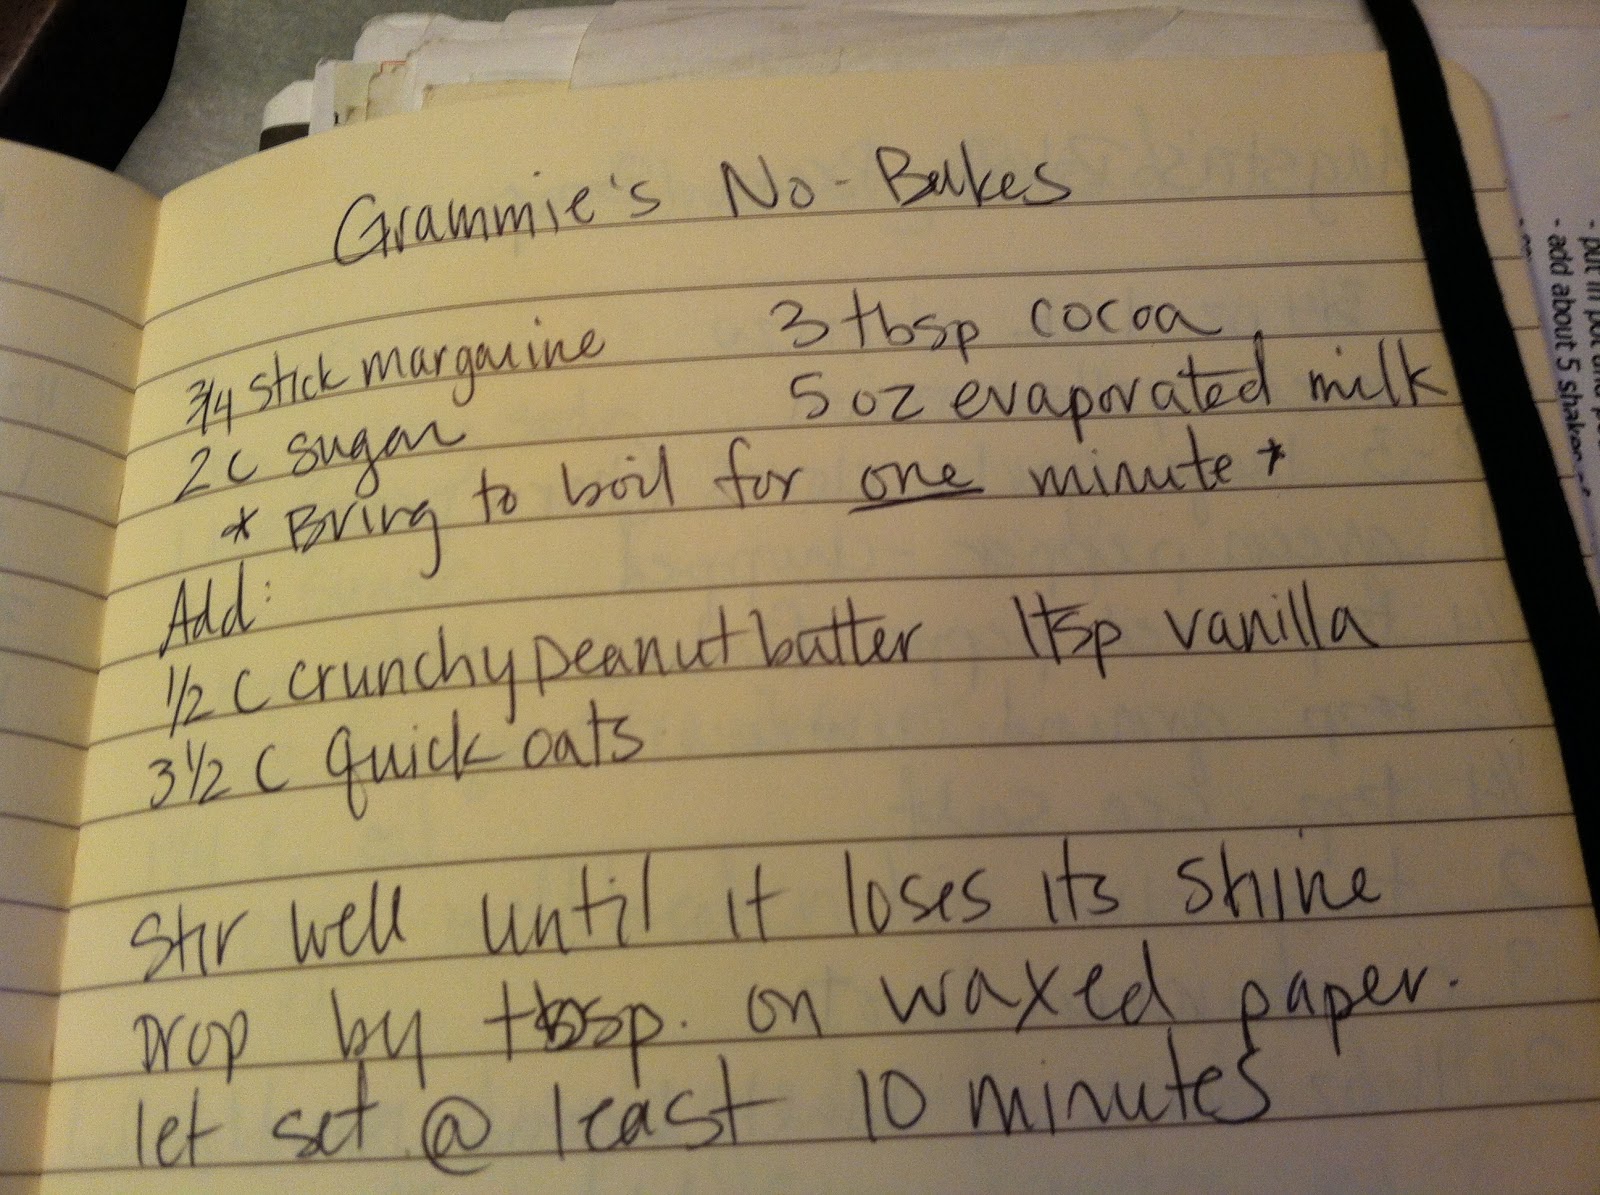 Grammie's No-Bakes
3/4 stick margarine 3 tbsp cocoa
2 c sugar 5 oz evaporated milk
* Bring to boil for one minute *
Add:
1/2 c crunchy peanut butter 1 tsp vanilla
3 1/2 c quick oats
Stir well until it loses its shine
Drop by tbsp. on waxed paper.
let set @ least 10 minutes
- put in pot and
- add about 5 shakes